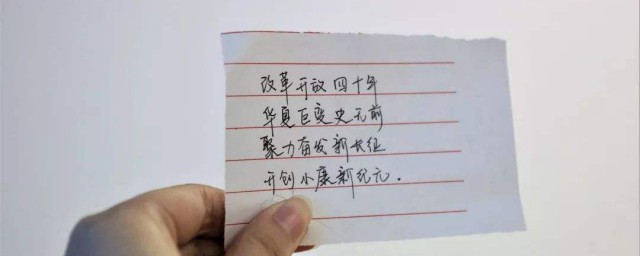 改革开放四十年
华夏巨变史无前
聚力奋发新长征
开创小康新纪元.